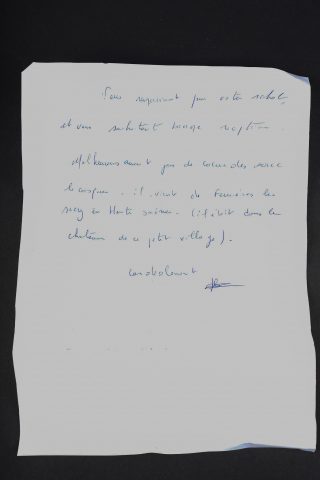 Vous remerciant pour votre achat,
et vous souhaitant bonne réception.
Malheureusement pas de coordonnées avec
. il vient de les
en Haute Saône. (il était dans le
château de ce petit village).
Cordialement